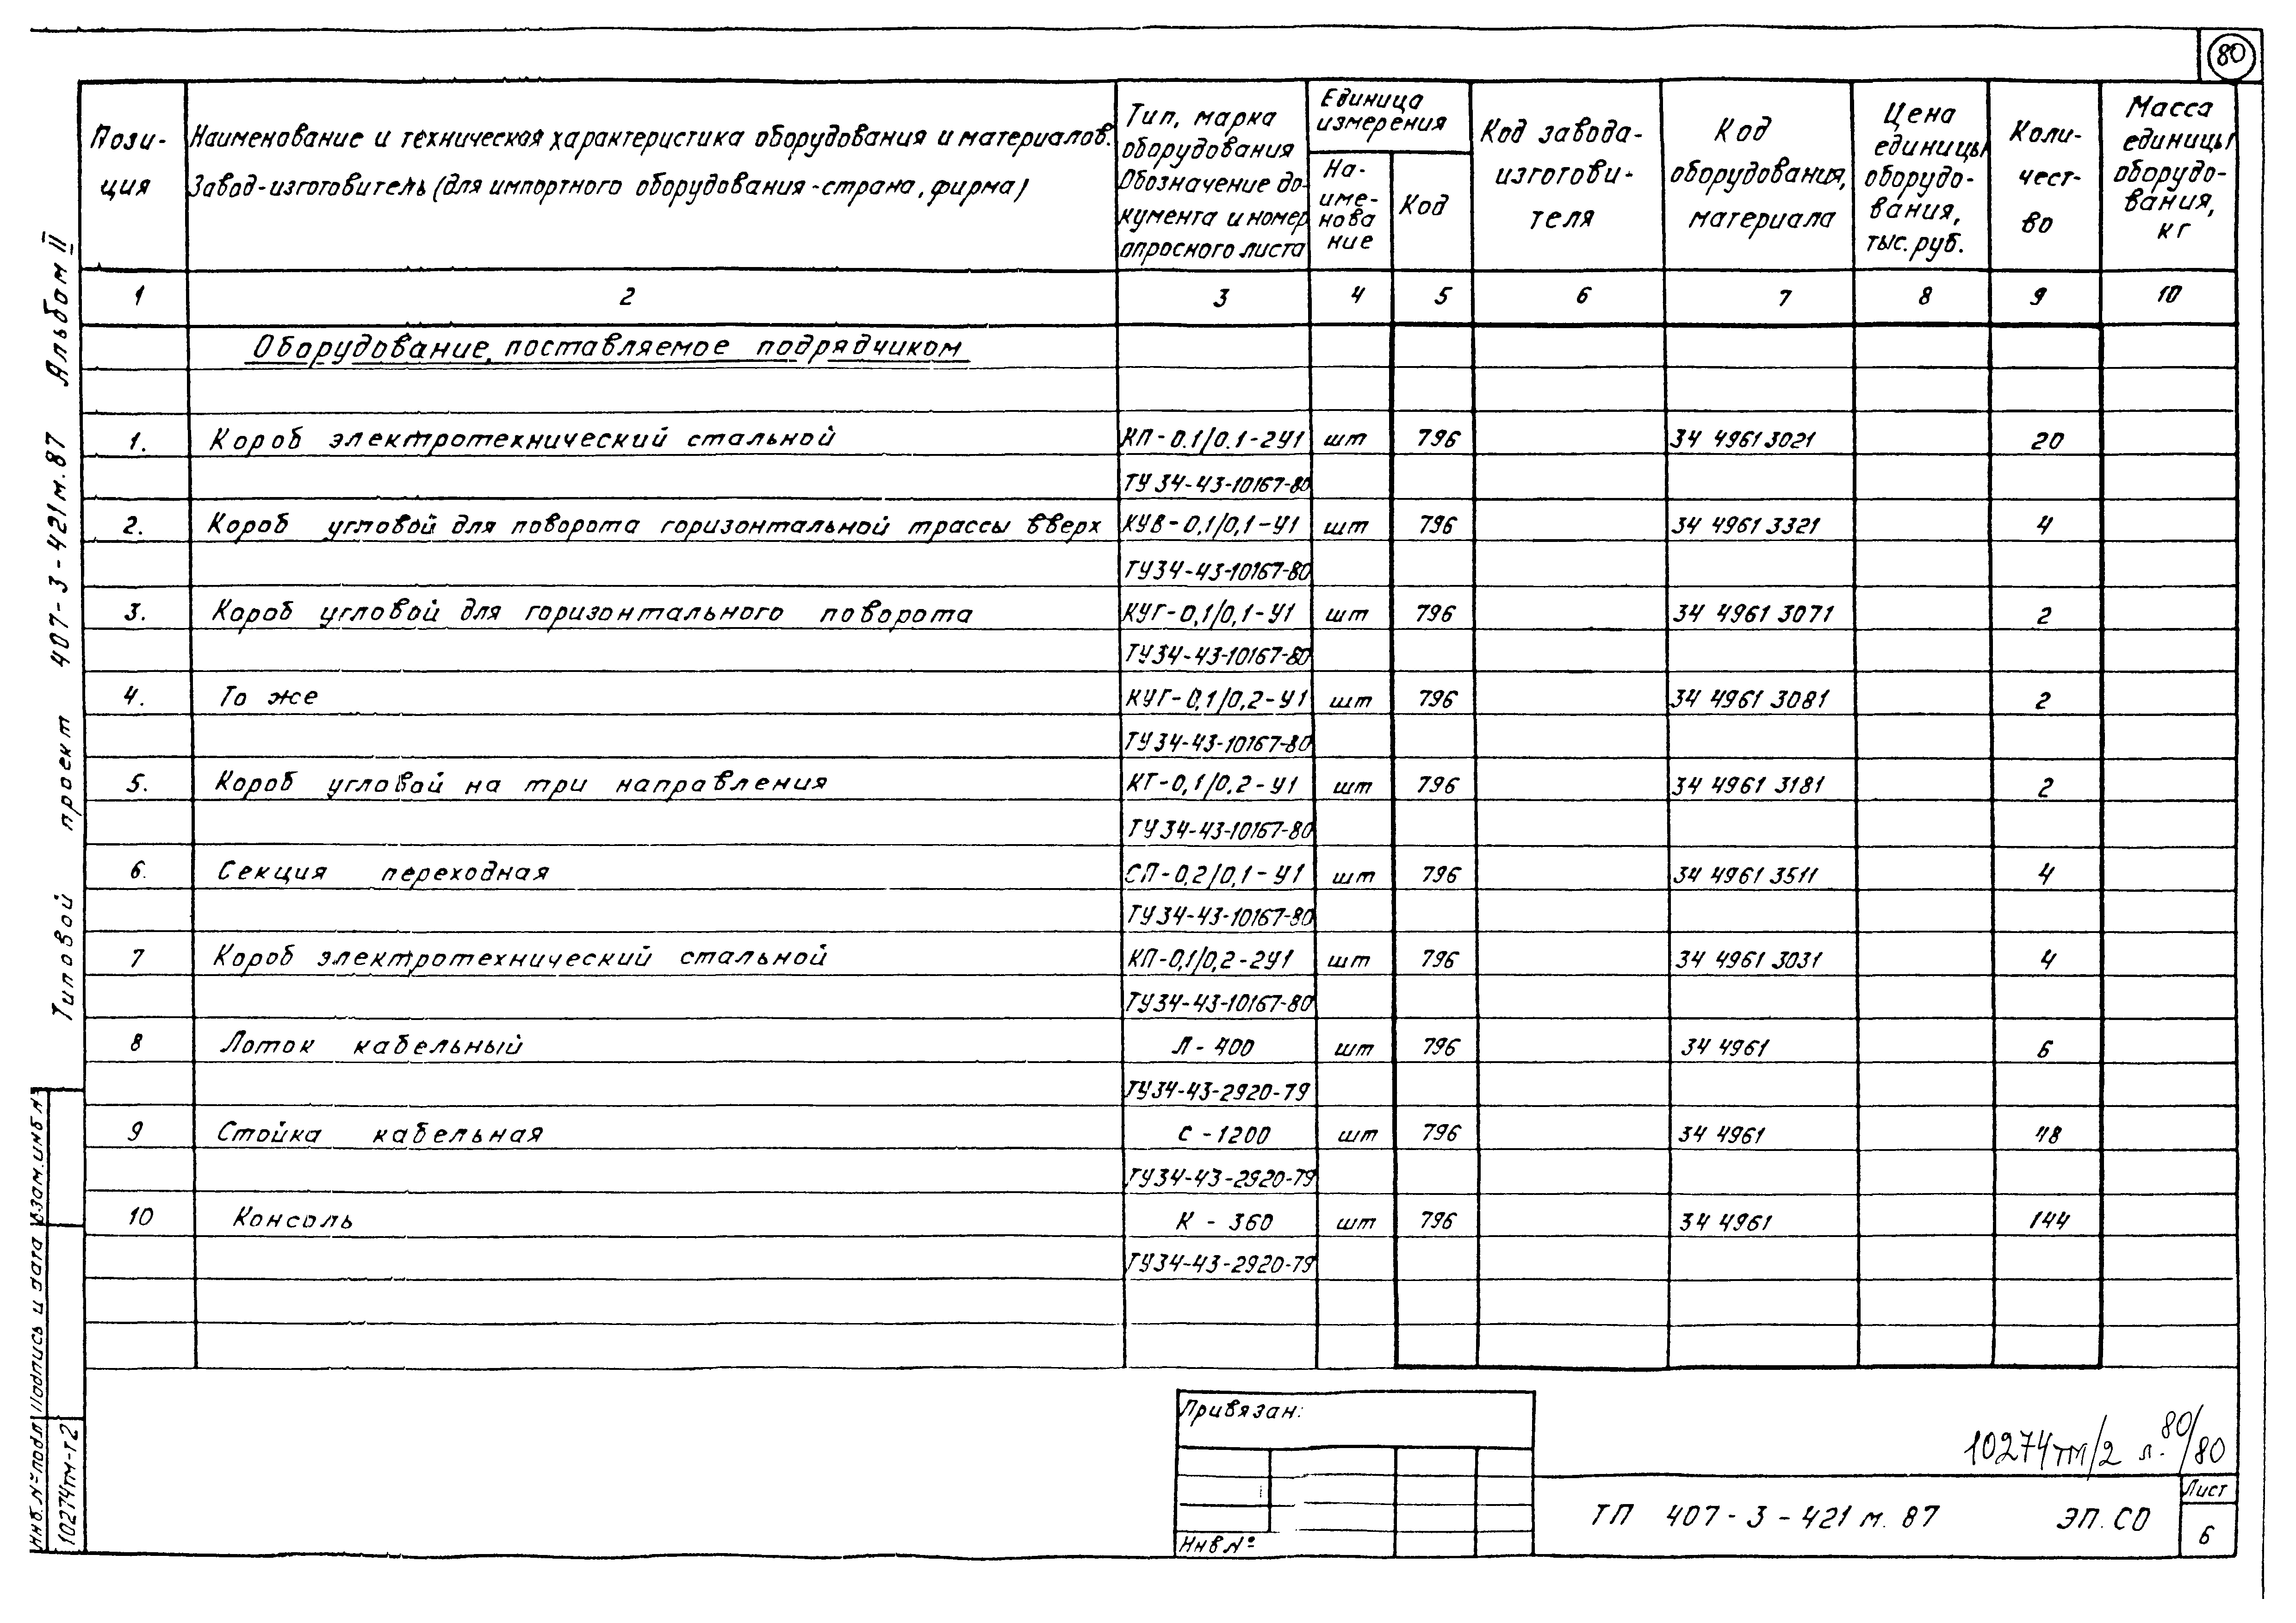 80
Пози-
ция
Наименование и техническая характеристика оборудования и материалов.
Завод-изготовитель (для импортного оборудования - страна, фирма)
Тип, марка
оборудования
Обозначение до-
кумента и номер
опросного листа
Единица
измерения
На-
име-
нова
ние
Код
Код завода-
изготови-
теля
Код
оборудования,
материала
Цена
единицы
оборудо-
вания,
тыс. руб.
Коли-
чест-
во
Масса
единицы
оборудо-
вания,
кг
1 2 3 4 5 6 7 8 9 10
Оборудование, поставляемое подрядчиком
1. Короб электротехнический стальной КП-0.1/0.1-2У1 шт 796 34 4961 3021 20
ТУ 34-43-10167-80
2. Короб угловой для поворота горизонтальной трассы вверх КУВ-0,1/0,1-У1 шт 796 34 4961 3321 4
ТУ34-43-10167-80
3. Короб угловой для горизонтального поворота КУГ-0,1/0,1-У1 шт 796 34 4961 3071 2
ТУ34-43-10167-80
4. То же КУГ-0,1/0,2-У1 шт 796 34 4961 3081 2
ТУ34-43-10167-80
5. Короб угловой на три направления КТ-0,1/0,2-У1 шт 796 34 4961 3181 2
ТУ34-43-10167-80
6. Секция переходная СП-0,2/0,1-У1 шт 796 34 4961 3511 4
ТУ34-43-10167-80
7 Короб электротехнический стальной КП-0,1/0,2-2У1 шт 796 34 4961 3031 4
ТУ34-43-10167-80
8 Лоток кабельный Л-400 шт 796 34 4961 6
ТУ34-43-2920-79
9 Стойка кабельная С-1200 шт 796 34 4961 48
ТУ34-43-2920-79
10 Консоль К-360 шт 796 34 4961 144
ТУ34-43-2920-79
Типовой проект 407-3-421м.87 Альбом II
Взам. инв №
Подпись и дата
Инв. № подл
10274тм-т2
Привязан:
Инв №
10274тм/2 л. 80/80
ТП 407-3-421м.87 ЭП.СО
Лист
6